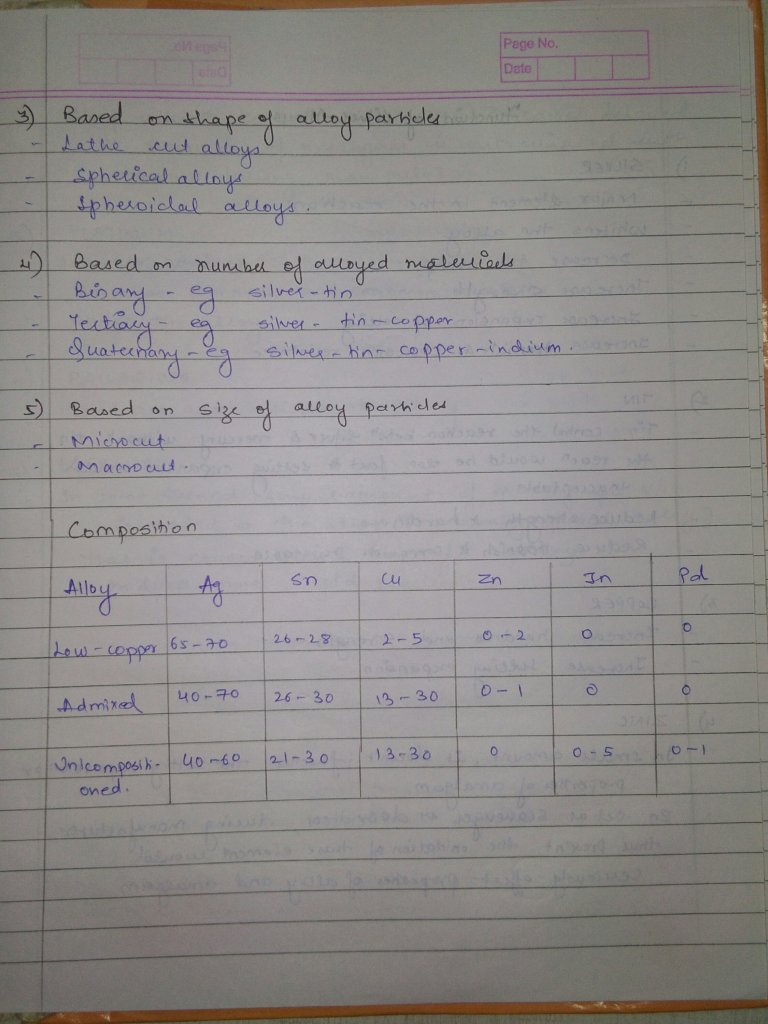 Page No.
Date
3) Based on shape of alloy particles
- Lathe cut alloys
- Spherical alloys
- Spheroidal alloys.
4) Based on number of alloyed materials
- Binary - eg silver-tin
- Tertiary - eg silver - tin - copper
- Quaternary - eg silver - tin - copper - indium.
5) Based on size of alloy particles
- Microcut
- Macrocut.
Composition
Alloy Ag Sn Cu Zn In Pd
Low-copper 65-70 26-28 2-5 0-2 0 0
Admixed 40-70 26-30 13-30 0-1 0 0
Unicompositi- 40-60 21-30 13-30 0 0-5 0-1
oned.